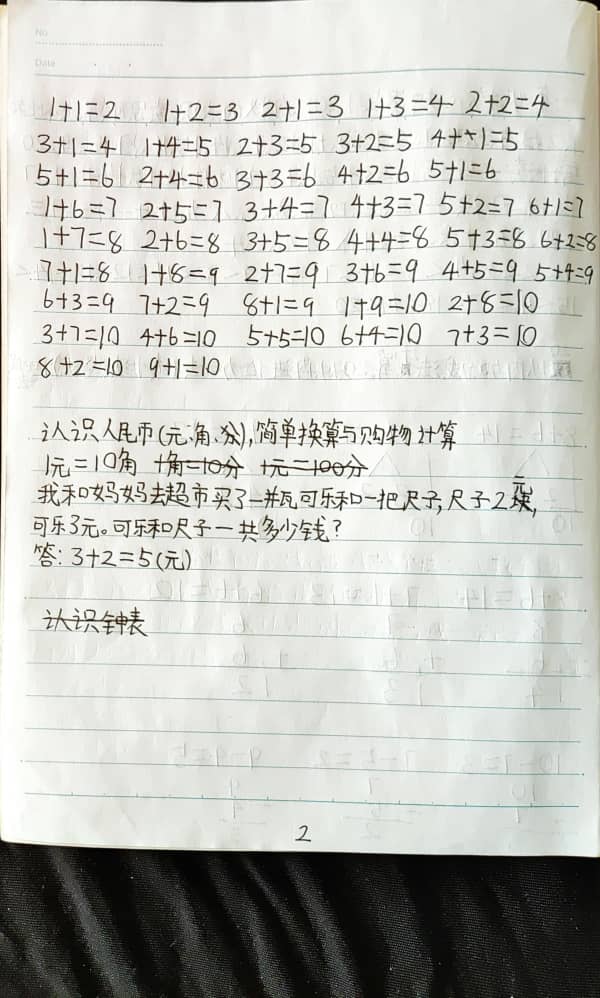 No
Date
1+1=2 1+2=3 2+1=3 1+3=4 2+2=4
3+1=4 1+4=5 2+3=5 3+2=5 4+1=5
5+1=6 2+4=6 3+3=6 4+2=6 5+1=6
1+6=7 2+5=7 3+4=7 4+3=7 5+2=7 6+1=7
1+7=8 2+6=8 3+5=8 4+4=8 5+3=8 6+2=8
7+1=8 1+8=9 2+7=9 3+6=9 4+5=9 5+4=9
6+3=9 7+2=9 8+1=9 1+9=10 2+8=10
3+7=10 4+6=10 5+5=10 6+4=10 7+3=10
8+2=10 9+1=10
认识人民币(元、角、分),简单换算与购物计算
1元=10角 1角=10分 1元=100分
我和妈妈去超市买了一瓶可乐和一把尺子,尺子2元,
可乐3元。可乐和尺子一共多少钱?
答:3+2=5(元)
认识钟表
2